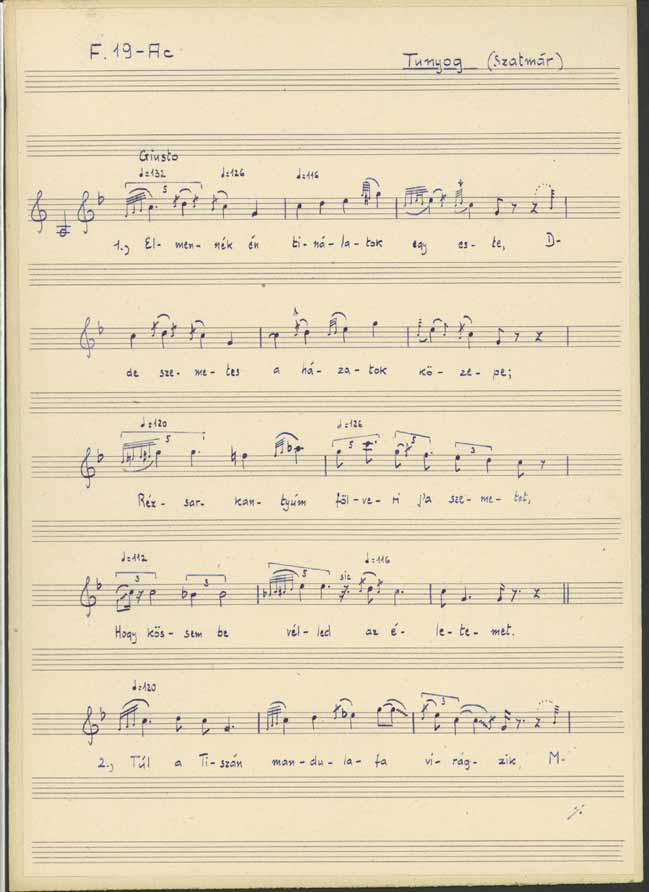 F. 19-Ac
Tunyog (Szatmár)
Giusto
♩=132 ♩=126 ♩=116
5
1., El- men- nék én ti- ná- la- tok egy es- te, D-
de sze- me- tes a há- za- tok kö- ze- pe;
♩=120 ♩=126
5 5 5 3
Réz- sar- kan- tyúm föl- ve- ri j'a sze- me- tet,
♩=112 sic ♩=116
3 3 5
Hogy kös- sem be vél- led az é- le- te- met.
♩=120
3
2., Túl a Ti- szán man- du- la- fa vi- rág- zik, M-